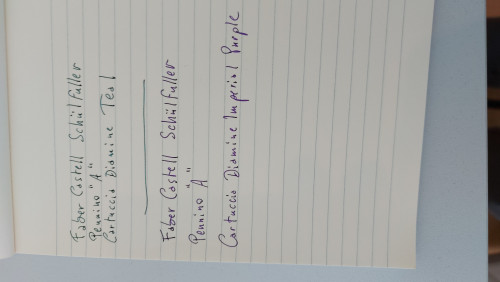 Faber Castell Schülfüller
Pennino "A"
Cartuccia Diamine Teal
Faber Castell Schülfüller
Pennino "A"
Cartuccia Diamine Imperial Purple